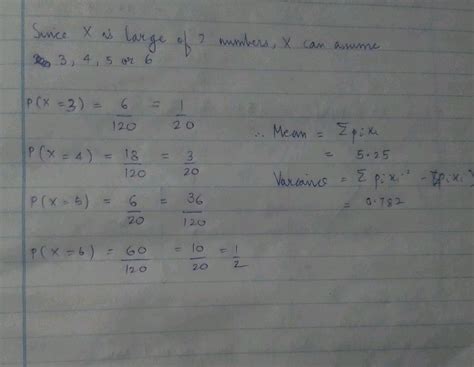 Since X is large of 3 numbers, X can assume
3, 4, 5 or 6
P(X = 3) = 6/120 = 1/20
P(X = 4) = 18/120 = 3/20
P(X = 5) = 6/20 = 36/120
P(X = 6) = 60/120 = 10/20 = 1/2
∴ Mean = Σ pixi
= 5.25
= Σ pi xi² - Σpi xi²
= 0.782